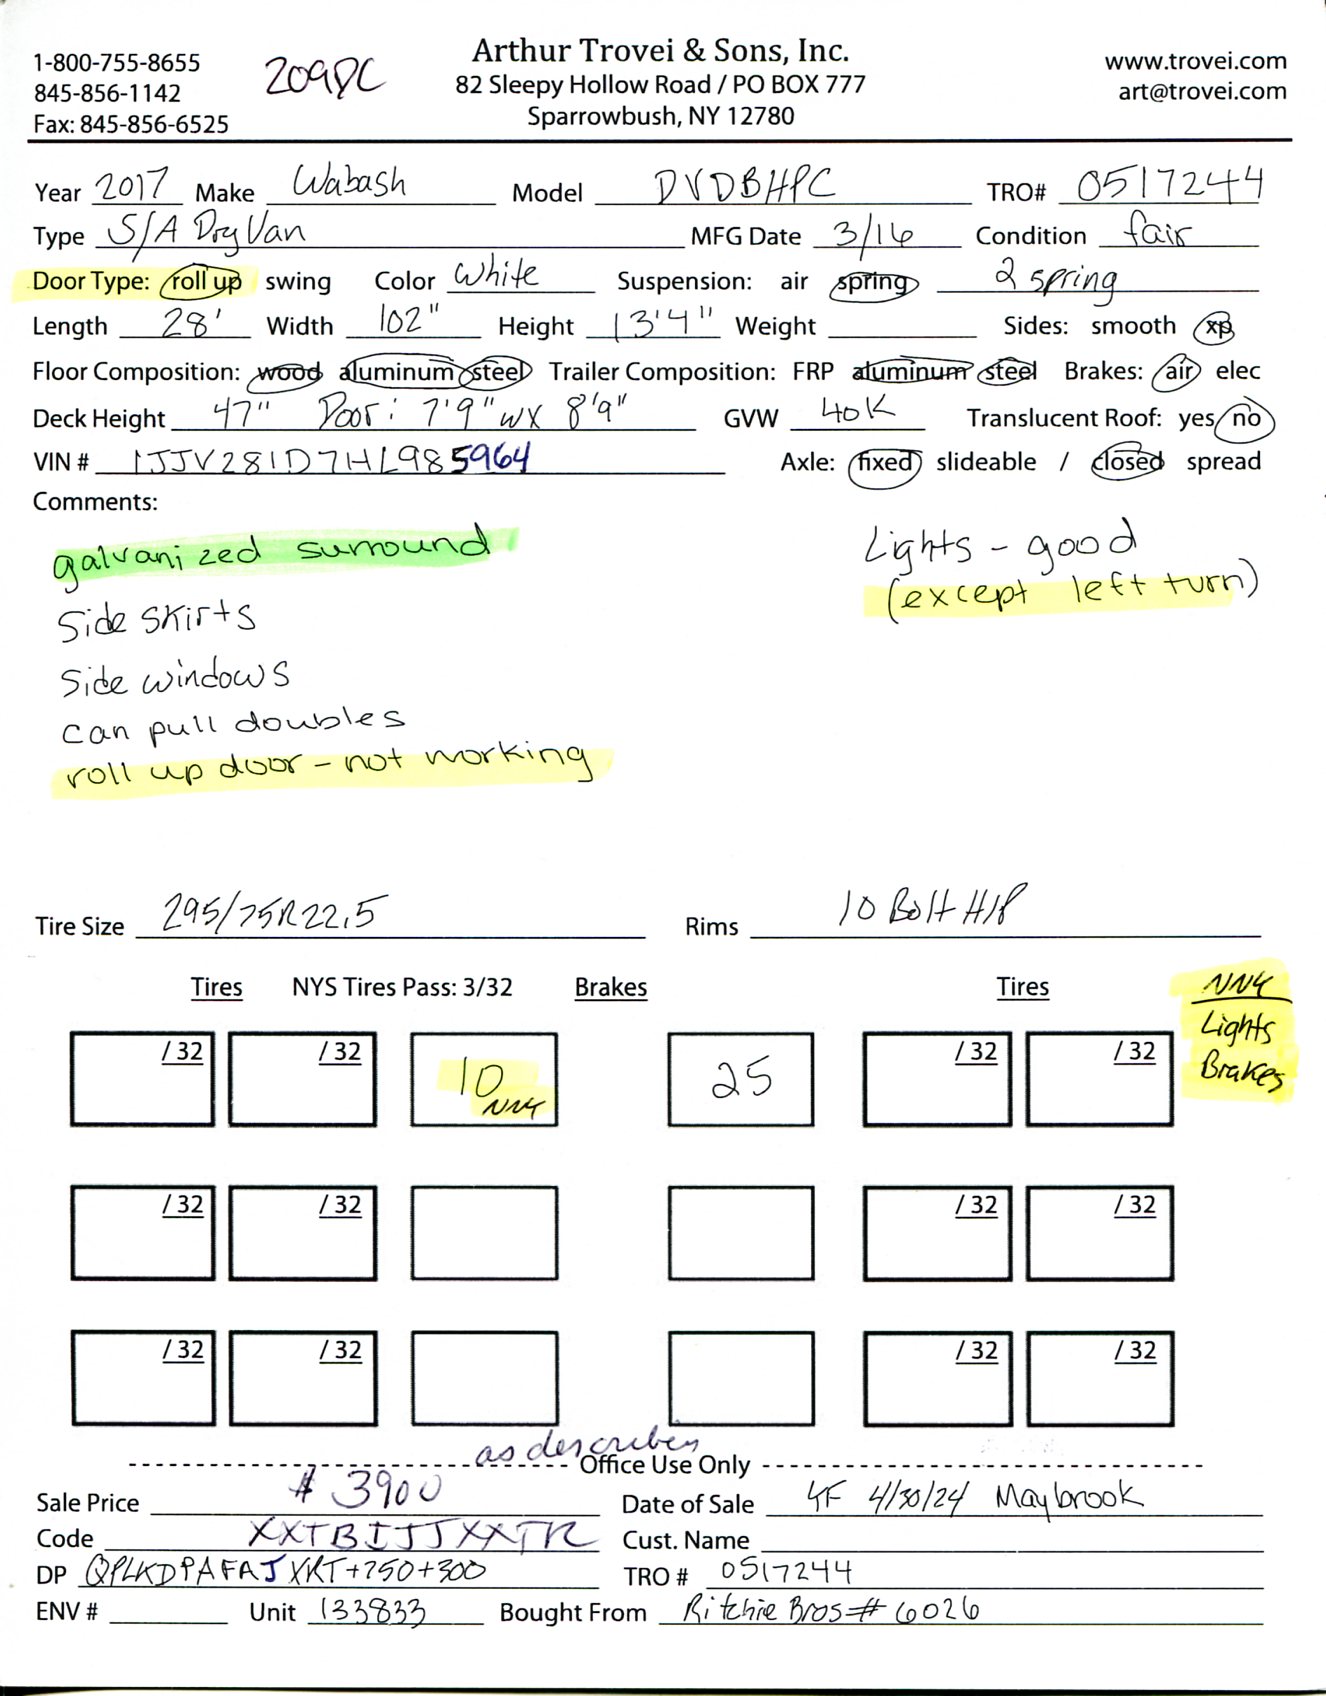 1-800-755-8655
845-856-1142
Fax: 845-856-6525
209PC
Arthur Trovei & Sons, Inc.
82 Sleepy Hollow Road / PO BOX 777
Sparrowbush, NY 12780
www.trovei.com
art@trovei.com
Year 2017 Make Wabash Model DVDBHPC TRO# 0517244
Type S/A Dry Van MFG Date 3/16 Condition fair
Door Type: roll up swing Color White Suspension: air spring 2 spring
Length 28' Width 102" Height 13'4" Weight Sides: smooth xp
Floor Composition: wood aluminum steel Trailer Composition: FRP aluminum steel Brakes: air elec
Deck Height 47" Door: 7'9"w x 8'9" GVW 40K Translucent Roof: yes no
VIN # 1JJV281D7HL985964 Axle: fixed slideable / closed spread
Comments:
galvanized surround
Side skirts
Side windows
can pull doubles
roll up door - not working
Lights - good
(except left turn)
Tire Size 295/75R22.5 Rims 10 Bolt H/P
Tires NYS Tires Pass: 3/32 Brakes Tires
NNY
Lights
Brakes
/ 32 / 32 10 NNY 25 / 32 / 32
/ 32 / 32 / 32 / 32
/ 32 / 32 / 32 / 32
as described
Office Use Only
Sale Price $3900 Date of Sale YF 4/30/24 Maybrook
Code XXTBIJJXXTR Cust. Name
DP QPLKDPAFAJXRT+750+300 TRO # 0517244
ENV # Unit 133833 Bought From Ritchie Bros # 6026